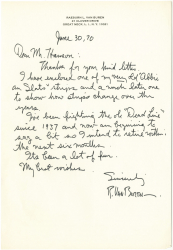 RAEBURN L. VAN BUREN
GREAT NECK, L. I., N. Y.
June 30, 70
Dear Mr Hanson:
Thanks for your kind letter
I have enclosed one of my very old "Abbie
an Slats" strips and a much later one
to show how strips change over the
years.
I've been fighting the old "Dead Line"
since 1937 and now am beginning to
say a bit so I intend to retire within
the next six months.
It's been a lot of fun.
My best wishes.
Sincerely
R. Van Buren